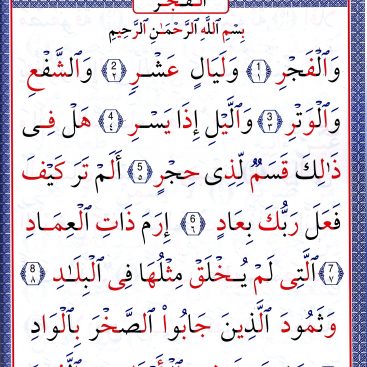 الفجر
بِسْمِ ٱللَّهِ ٱلرَّحْمَـٰنِ ٱلرَّحِيمِ
وَٱلْفَجْرِ ﴿١﴾ وَلَيَالٍ عَشْـرٍ ﴿٢﴾ وَٱلشَّفْعِ
وَٱلْوَتْرِ ﴿٣﴾ وَٱلَّيْلِ إِذَا يَسْـرِ ﴿٤﴾ هَلْ فِـى
ذَٰلِكَ قَسَمٌ لِّذِى حِجْرٍ ﴿٥﴾ أَلَمْ تَرَ كَيْفَ
فَعَلَ رَبُّكَ بِعَادٍ ﴿٦﴾ إِرَمَ ذَاتِ ٱلْعِمَـادِ
﴿٧﴾ ٱلَّتِى لَمْ يُـخْلَقْ مِثْلُهَا فِى ٱلْبِلَـٰدِ ﴿٨﴾
وَثَمُودَ ٱلَّذِينَ جَابُوا۟ ٱلصَّخْرَ بِٱلْوَادِ